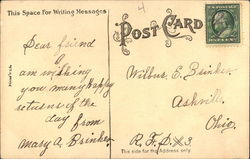 This Space For Writing Messages
POST CARD
Dear friend
I am wishing
you many happy
returns of the
day from
Mary A. Brinker
Wilbur E. Brinker
Ashville
Ohio.
R. F. D. 3.
This side for the Address only